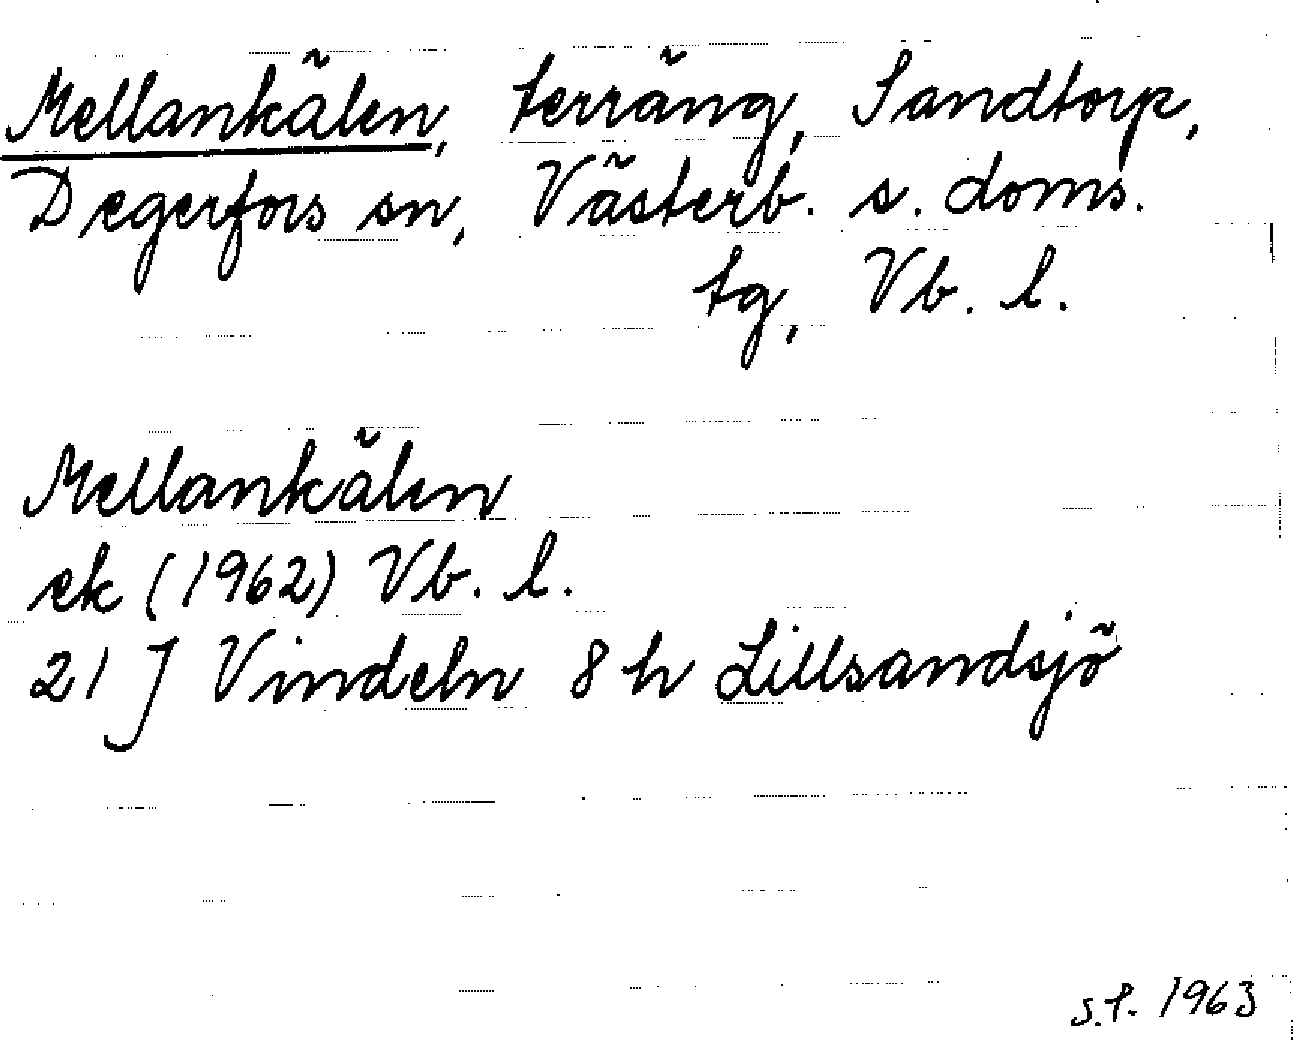 Mellankälen, terräng, Sandtorp,
Degerfors sn, Västerb. s. doms.
tg, Vb. l.
Mellankälen
ek (1962) Vb. l.
21 J Vindeln 8 h Lillsandsjö
s.f. 1963